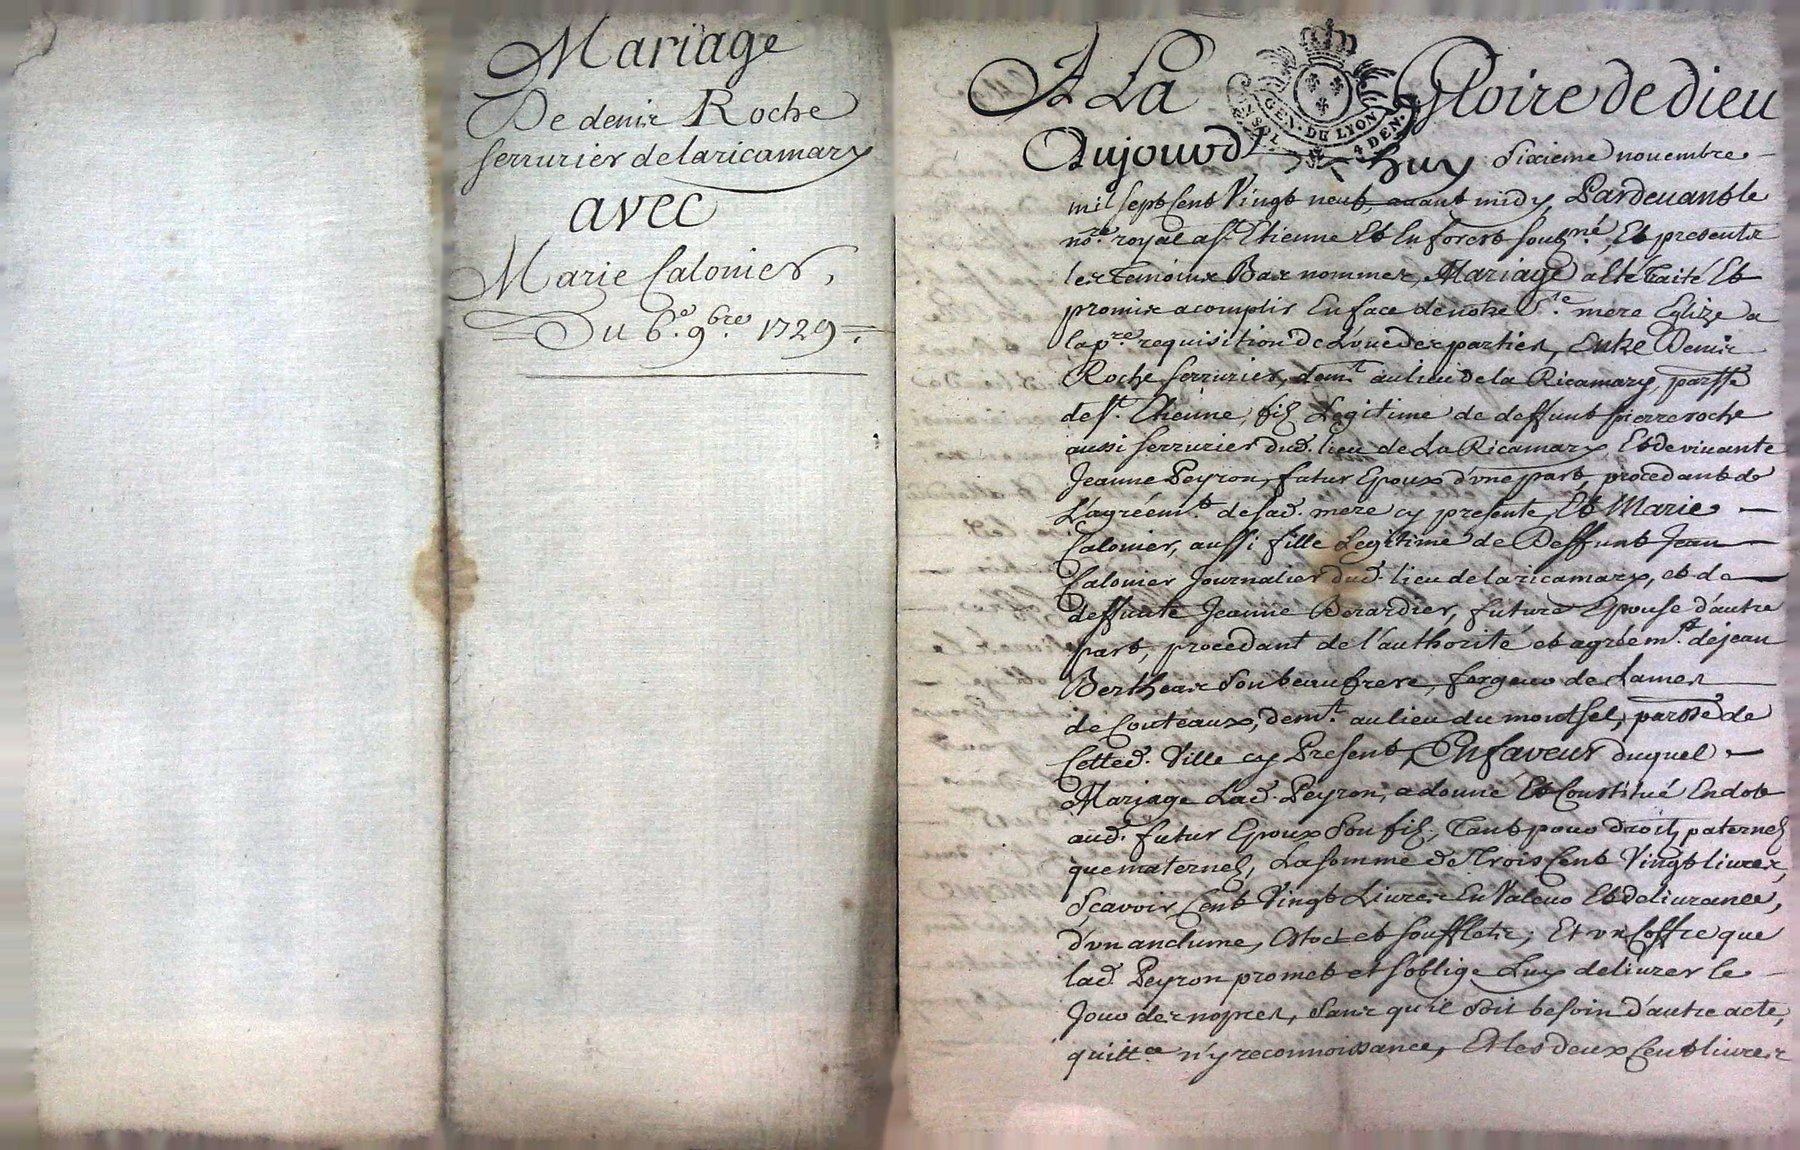 Mariage
De denis Roche
serrurier de laricamary
avec
Marie Calonier,
Du 6e. 9bre 1729.
A La Gloire de dieu
GEN. DU LYON
SOL. 4 DEN.
Aujourd huy sixieme novembre
mil sept cent vingt neuf, avant midy, Pardevant le
nore. royal a st. Etienne Et en forest soubné. Et presents
les temoins Bas nommes, Mariage a eté traité Et
promis acomplir En face de notre Ste. mere Eglize a
la pre. requisition de L'une des parties, Entre Denis
Roche serrurier, demt. au lieu de la Ricamary, parsse
de st. Etienne, fils Legitime de deffunt pierre roche
aussi serrurier dud. lieu de La Ricamary, Et de vivante
Jeanne Peyron, futur Epoux d'vne part, procedant de
L'agréemt. de sad. mere cy presente, Et Marie
Calonier, aussi fille Legitime de Deffunt Jean
Calonier Journalier dud. lieu de laricamary, et de
deffunte Jeanne Berardier, future Epouse d'autre
part, procedant de l'authorité et agréemt. de jean
Bertheas son beaufrere, forgeur de Lames
de Couteaux, demt. au lieu du montsel, parsse de
Cetted. Ville cy Present, En faveur duquel
Mariage Lad. Peyron, a donné Et Constitué En dot
aud. futur Epoux son fils, Tant pour droits paternels
que maternels, La somme de Trois Cent Vingt livres,
Sçavoir Cent Vingt Livres En Valeur Et delivrance,
d'vn anclume, Etoc et soufflets; Et vn Coffre que
lad. Peyron promet et s'oblige Luy delivrer le
Jour des nopces, sans qu'il soit besoin d'autre acte,
quittce n'y reconnoissance, Et les deux Cent livres